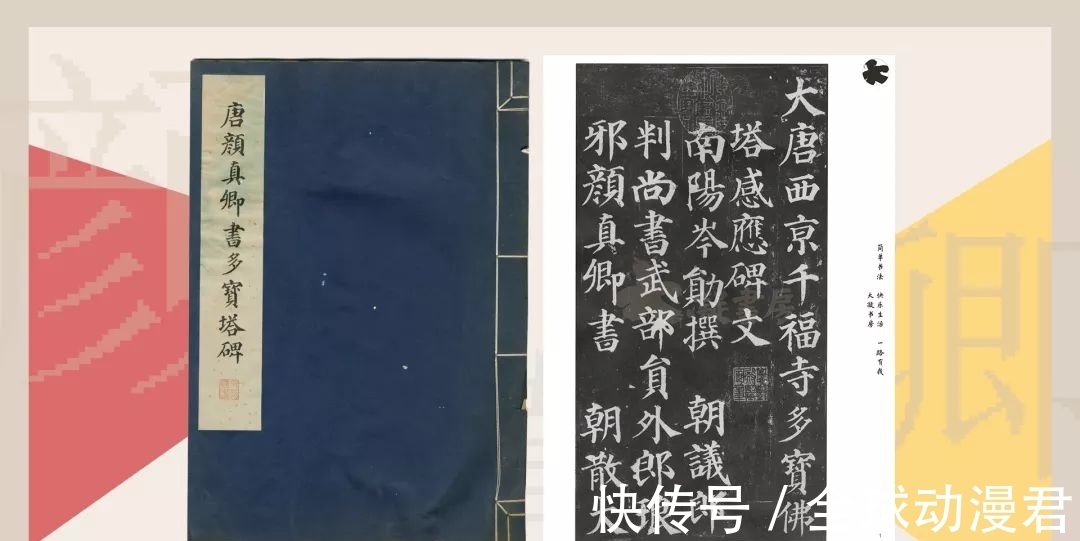 唐顏真卿書多寶塔碑
大唐西京千福寺多寶佛
塔感應碑文
南陽岑勛撰 朝議郎
判尚書武部員外郎琅
邪顏真卿書 朝散大
简单书法 快乐生活 一路有我
书房
快传号 / 全球动漫君